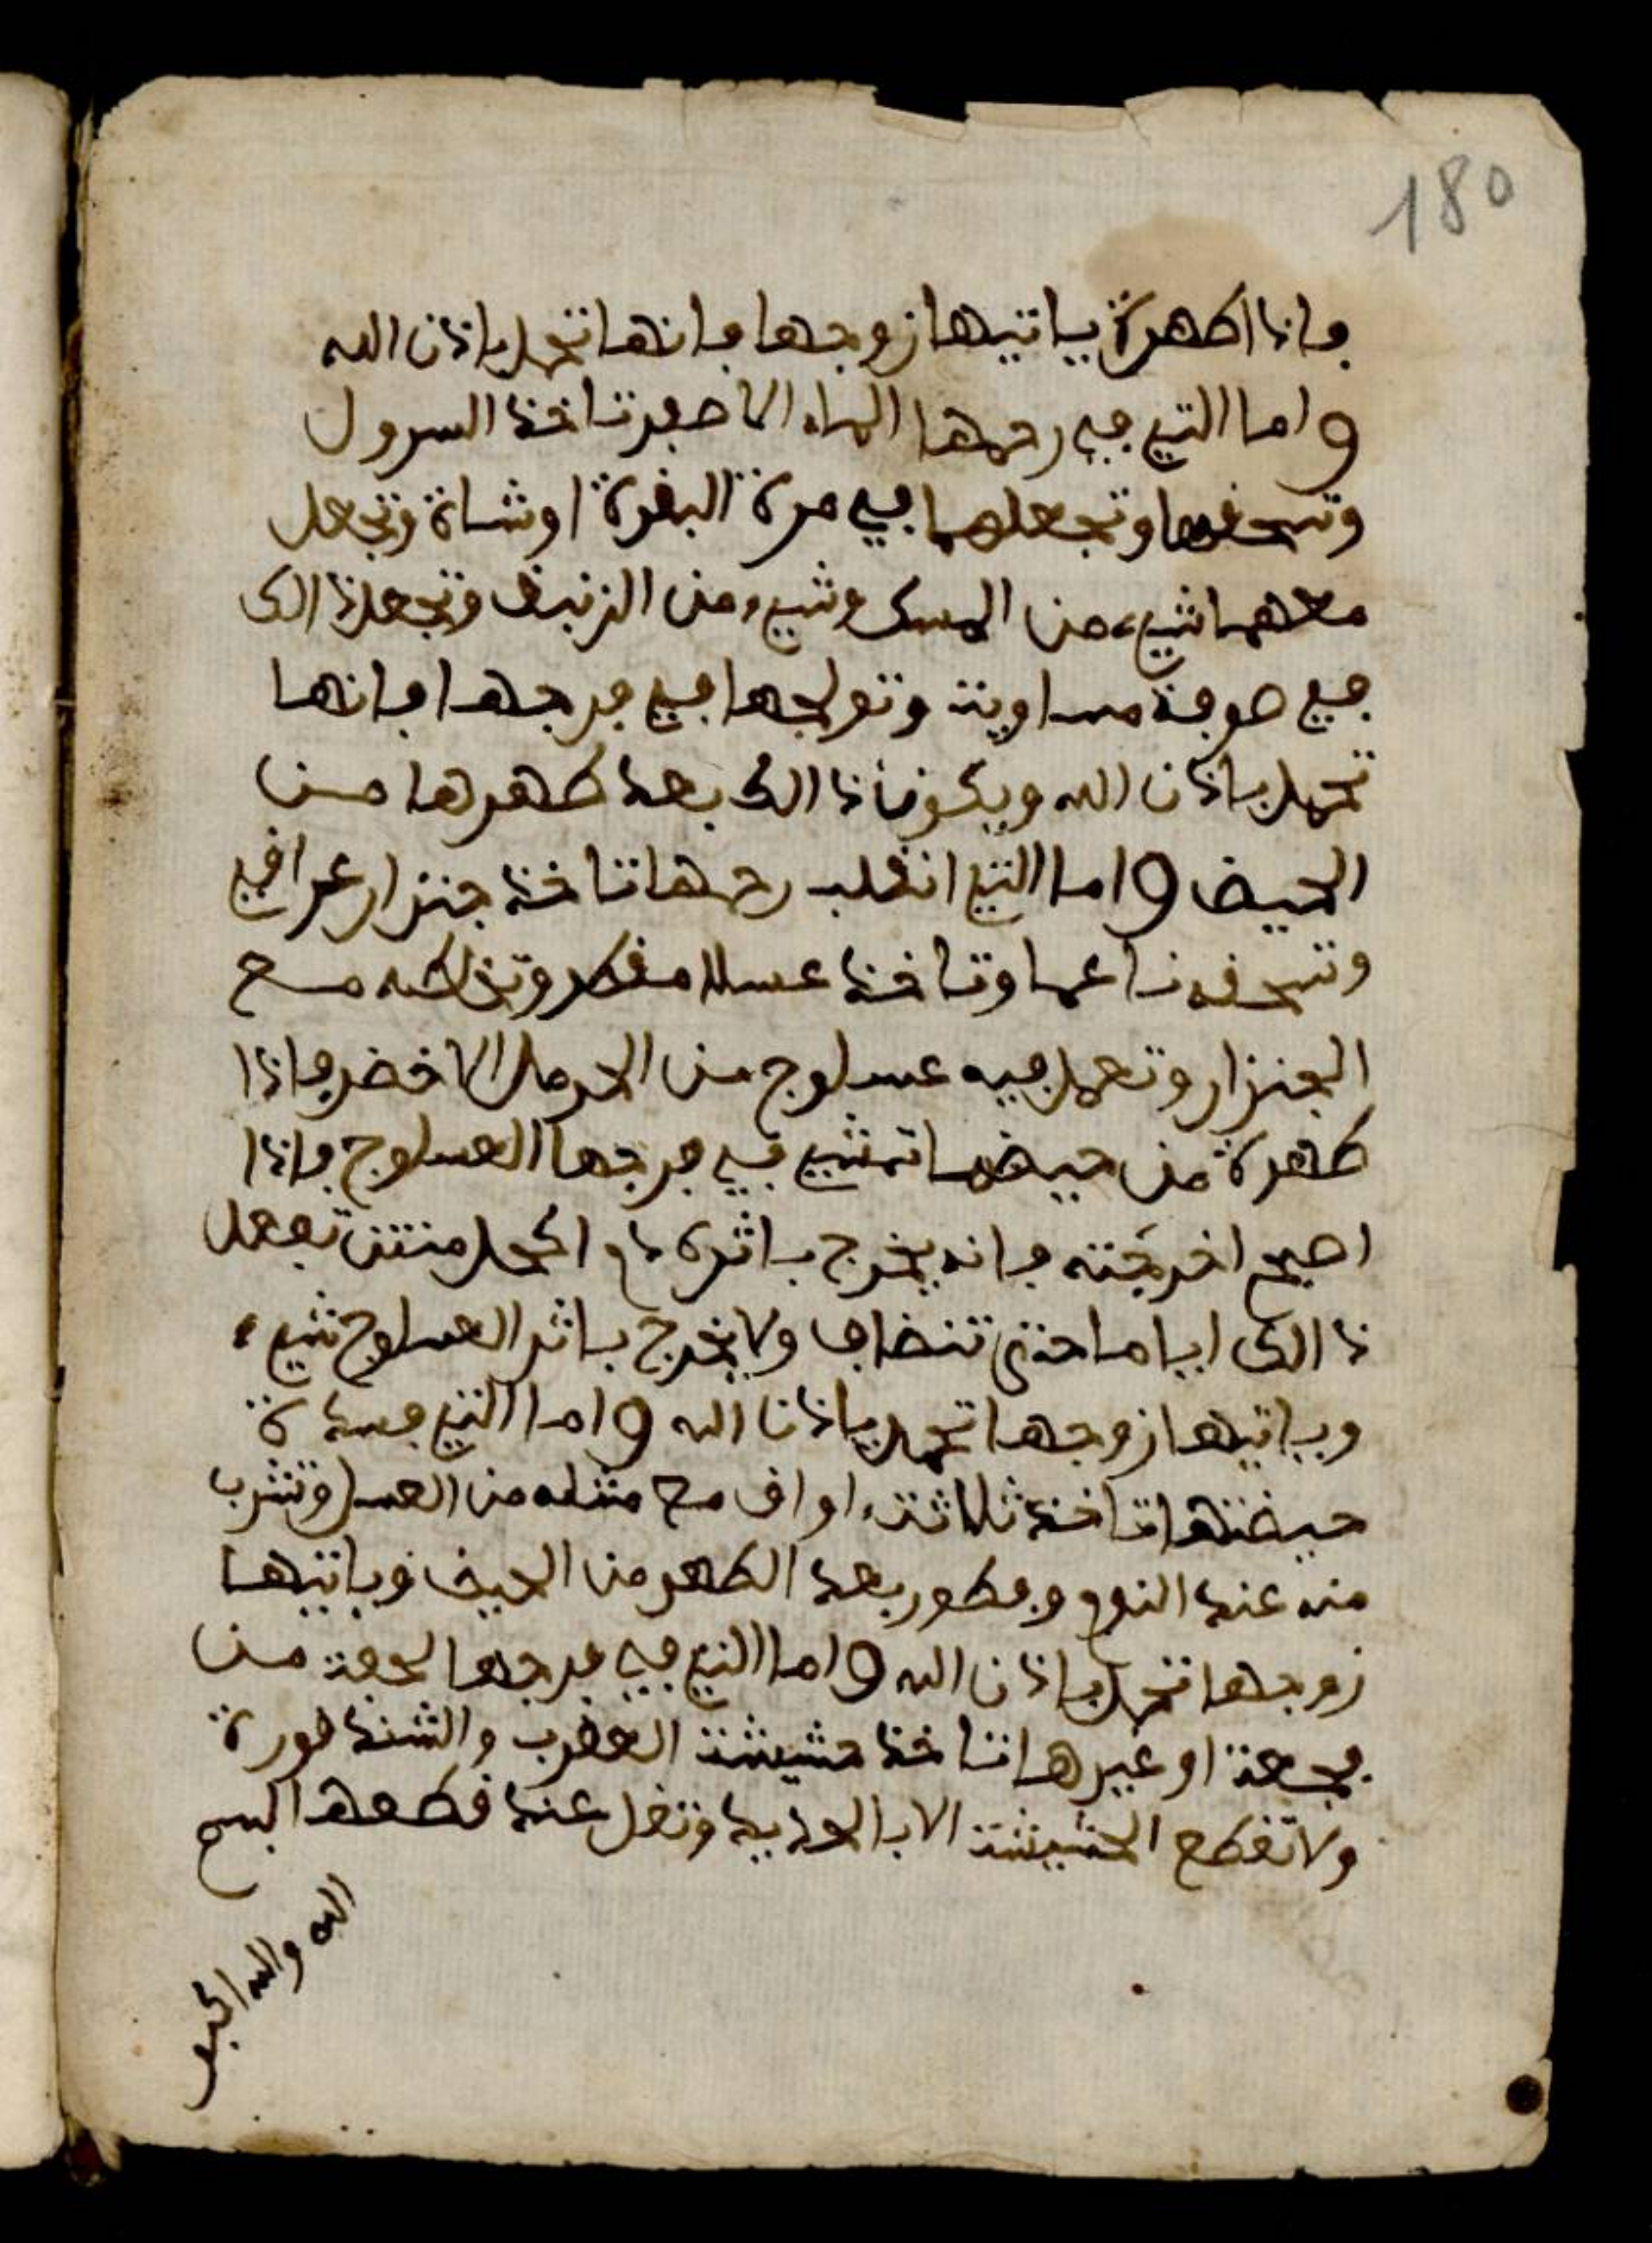 180
فاذا اطهرة ياتيها زوجها فانها تحمل باذن الله
واما التي في رحمها الماء الاصفر تاخذ السرول
وتسحقهما وتجعلهما في مرة البقرة او شاة وتجعل
معهما شيء من المسك وشيء من الزنبق وتجعل ذالك
في صوفة مداوية وتولجها في فرجها فانها
تحمل باذن الله ويكون ذالك بعد طهرها من
الحيض واما التي انقلب رحمها تاخذ جنزار عراقي
وتسحقه ناعما وتاخذ عسلا مقطر وتخلطه مع
الجنزار وتعمل فيه عسلوج من الحرمل الاخضر فاذا
طهرة من حيضها تمشي في فرجها العسلوج فاذا
اصبح اخرجته فانه يخرج باثره دم اكحل منتن تفعل
ذالك اياما حتى تنضاف ولا يخرج باثر العسلوج شيء
وياتيها زوجها تحمل باذن الله واما التي فسدة
حيضتها تاخذ ثلاثة اواق مع مثله من العسل وتشرب
منه عند النوم وفطور بعد الطهر من الحيض وياتيها
زوجها تحمل باذن الله واما التي في فرجها لحفة من
فجعة او غيرها تاخذ حشيشة العقرب والشندقورة
ولا تقطع الحشيشة الا بالحديد وتقل عند قطعها بسم
الله والله اكبر